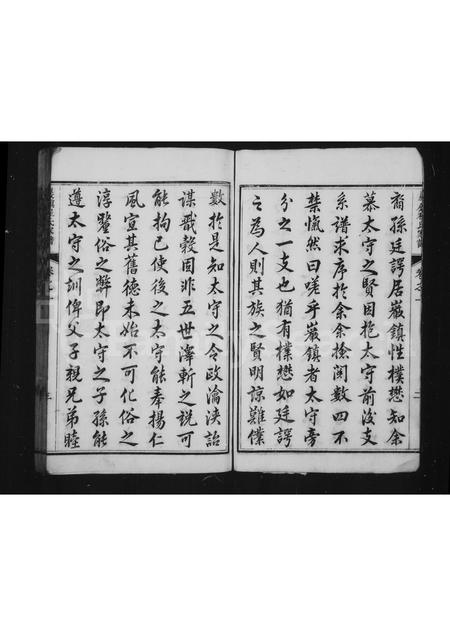 裔孫廷諤居巖鎮性樸懋知余
慕太守之賢因抱太守前後支
系譜求序於余余撿閱數四不
禁愾然曰嗟乎巖鎮者太守旁
分之一支也猶有樸懋如廷諤
之為人則其族之賢明諒難僕
數於是知太守之令政淪浹詒
謀戩穀固非五世澤斬之說可
能拘已使後之太守能奏揚仁
風宣其舊德未始不可化俗之
淳鑒俗之弊即太守之子孫能
遵太守之訓俾父子親兄弟睦